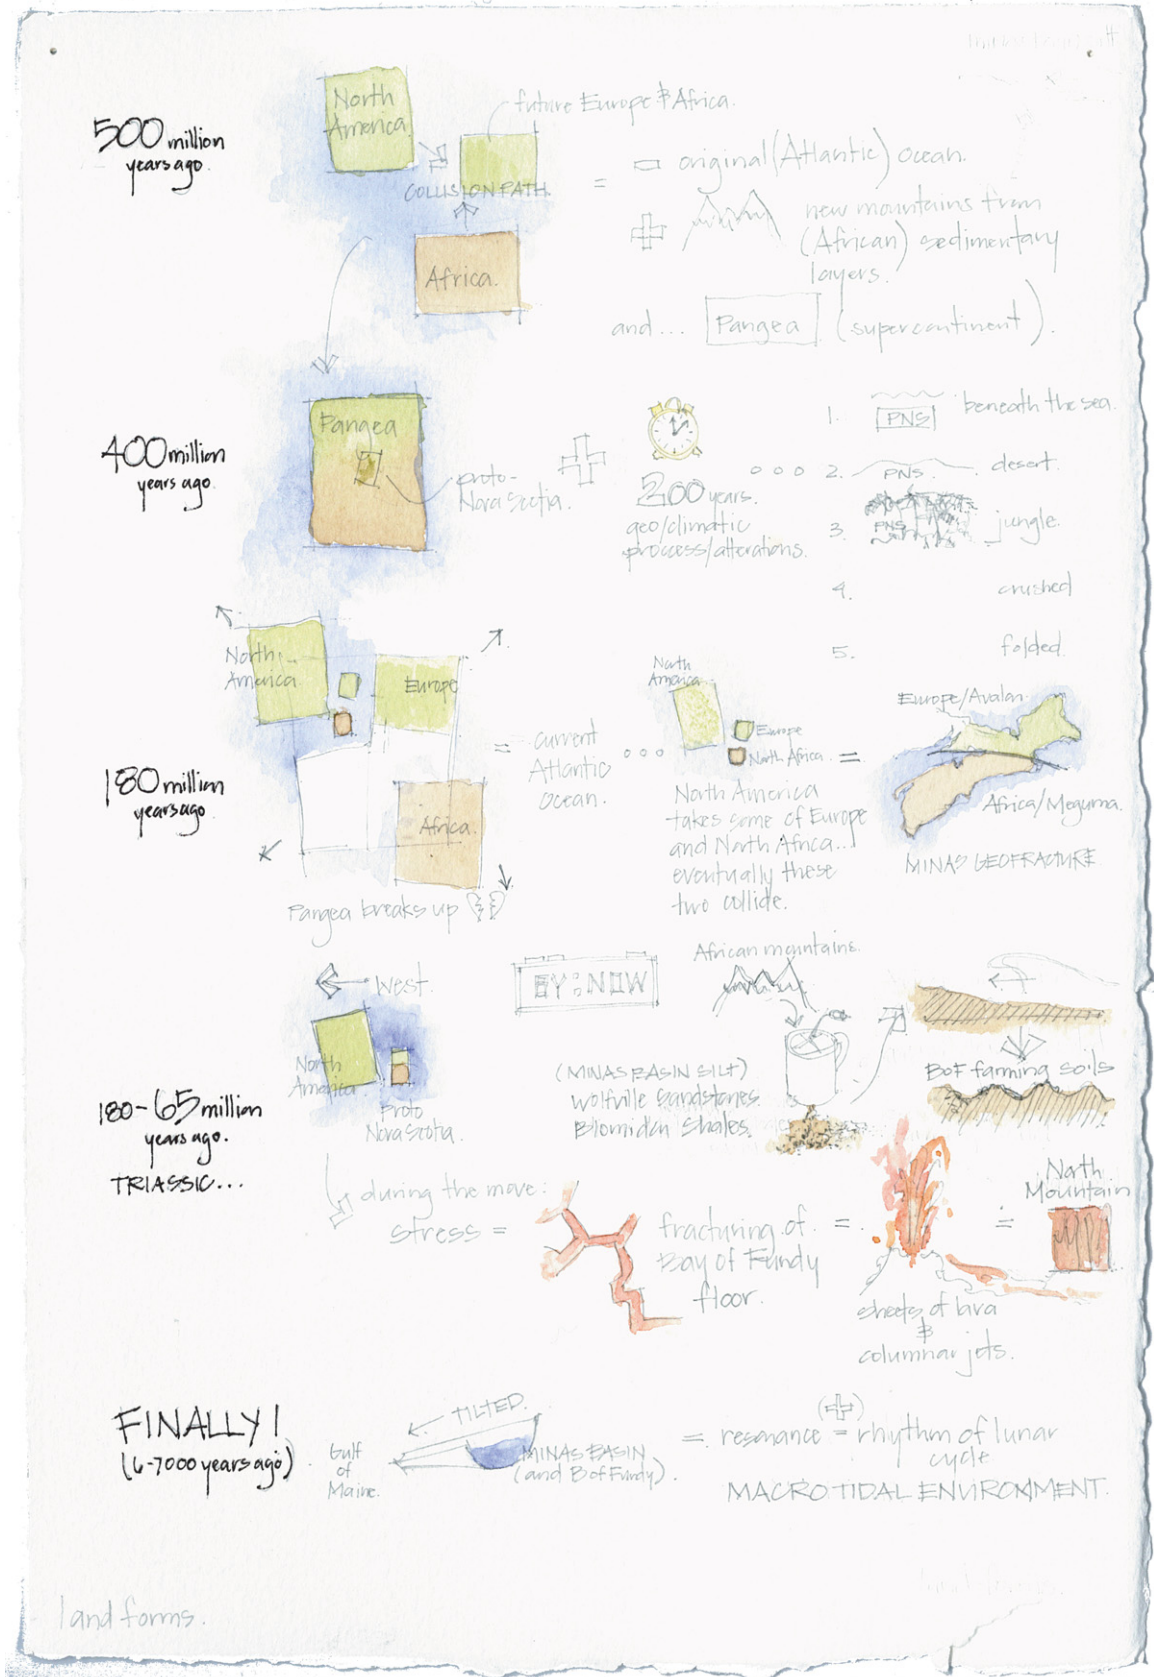 500 million
years ago.
North
America
future Europe & Africa.
COLLISION PATH.
Africa.
= original (Atlantic) ocean.
new mountains from
(African) sedimentary
layers.
and... Pangea (supercontinent).
400 million
years ago.
Pangea
proto-
Nova Scotia.
200 years.
geo/climatic
process/alterations.
1. PNS beneath the sea.
2. PNS desert.
3. PNS jungle.
4. crushed
5. folded.
180 million
years ago.
North
America
Europe
Africa.
Pangea breaks up
= current
Atlantic
Ocean.
North
America
Europe
North Africa. =
North America
takes some of Europe
and North Africa...
eventually these
two collide.
Europe/Avalon.
Africa/Meguma.
MINAS GEOFRACTURE
180-65 million
years ago.
TRIASSIC...
West.
North
America
proto
Nova Scotia.
BY:NOW
African mountains.
(MINAS BASIN SILT)
Wolfville Sandstones.
Blomidon Shales.
BoF farming soils
during the move:
stress =
fracturing of
Bay of Fundy
floor.
=
sheets of lava
&
columnar jets.
=
North
Mountain
FINALLY!
(6-7000 years ago)
Gulf
of
Maine.
TILTED.
MINAS BASIN
(and B of Fundy).
= resonance = rhythm of lunar
cycle
MACROTIDAL ENVIRONMENT.
land forms.